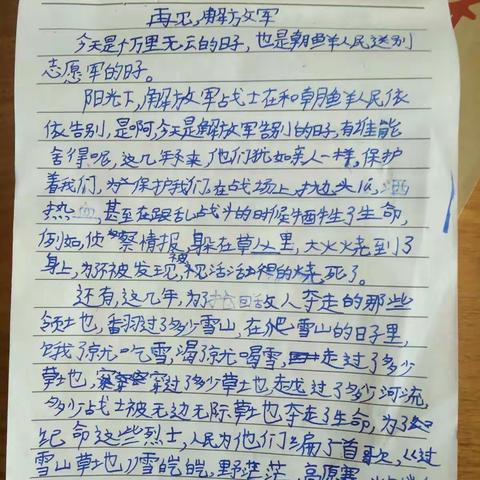 再见,解放军
今天是个万里无云的日子,也是朝鲜人民送别
志愿军的日子。
阳光下,解放军战士在和朝鲜人民依
依告别,是啊,今天是解放军告别的日子,有谁能
舍得呢,这几年来,他们犹如亲人一样。保护
着我们,为了保护我们,在战场上抛头 洒
热血,甚至在 战斗的时候牺牲了生命,
例如,侦察情报,躲在草丛里,大火烧到了
身上,为不被发现,被活活的烧死了。
还有,这几年,为了抢回敌人夺走的那些
领土也,翻过了多少雪山,在爬雪山的日子里,
饿了就吃雪,渴了就喝雪,走过了多少
草地,穿过了多少草地,走过了多少河流,
多少战士被无边无际草地夺走了生命,为了纪
命这些烈士,人民为他们编了首歌,
雪山草地,雪皑皑,野茫茫,高原寒